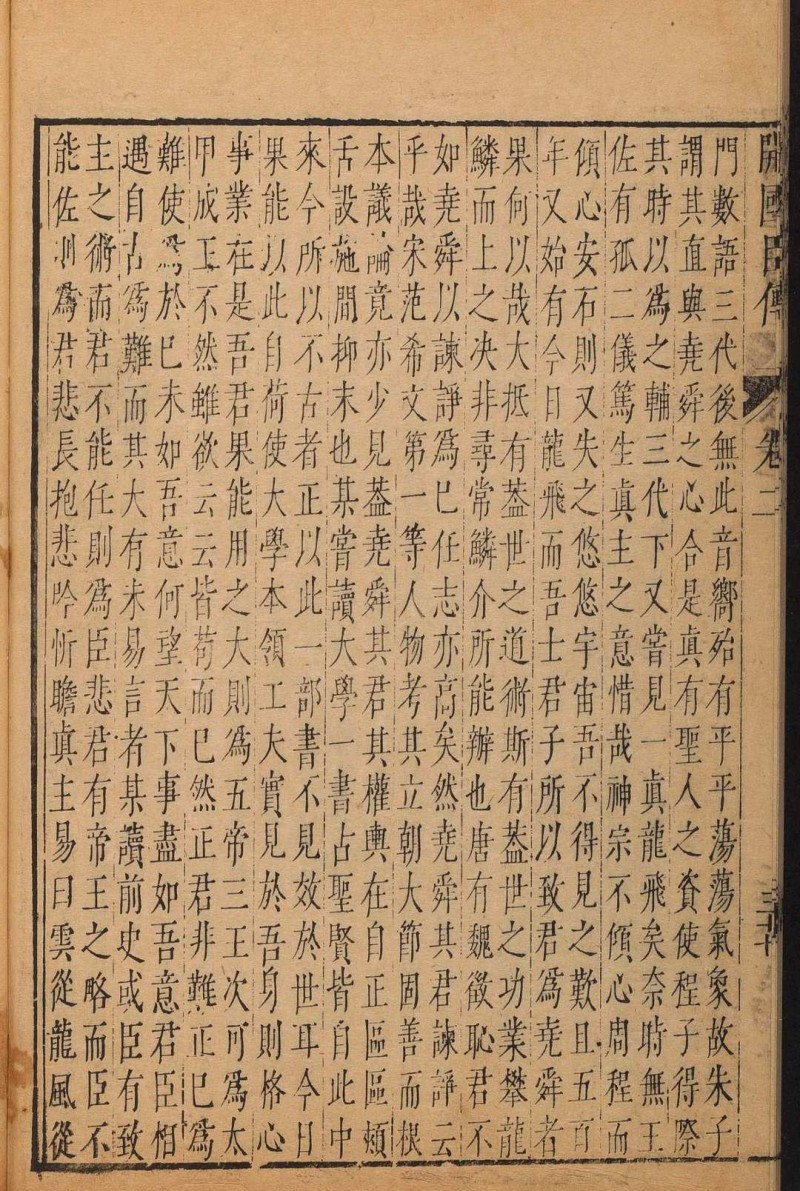 開國臣傳 卷二 三十
門數語三代後無此音嚮殆有平平蕩蕩氣象故朱子
謂其直與堯舜之心合是眞有聖人之資使程子得際
其時以爲之輔三代下又嘗見一眞龍飛矣奈時無王
佐有孤二儀篤生眞主之意惜哉神宗不傾心周程而
傾心安石則又失之悠悠宇宙吾不得見之歎且五百
年又始有今日龍飛而吾士君子所以致君爲堯舜者
果何以哉大抵有蓋世之道術斯有蓋世之功業攀龍
鱗而上之决非尋常鱗介所能辦也唐有魏徵恥君不
如堯舜以諫諍爲已任志亦高矣然堯舜其君諫諍云
乎哉宋范希文第一等人物考其立朝大節固善而根
本議論竟亦少見蓋堯舜其君其權輿在自正區區頰
舌設施間抑末也某嘗讀大學一書占聖賢皆自此中
來今所以不古者正以此一部書不見效於世耳今日
果能以此自荷使大學本領工夫實見於吾身則格心
事業在是吾君果能用之大則爲五帝三王次可爲太
甲成王不然雖欲云云皆苟而已然正君非難正已爲
難使爲於已未如吾意何望天下事盡如吾意君臣相
遇自古爲難而其大有未易言者某讀前史或臣有致
主之術而君不能任則爲臣悲君有帝王之略而臣不
能佐則爲君悲長抱悲吟忻瞻眞主易曰雲從龍風從